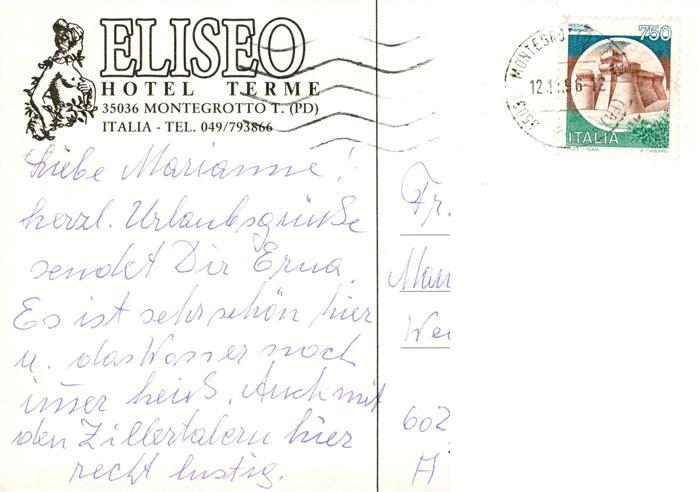 ELISEO
HOTEL TERME
35036 MONTEGROTTO T. (PD)
ITALIA - TEL. 049/793866
Liebe Marianne!
herzl. Urlaubsgrüße
sendet Dir Erna.
Es ist sehr schön hier
u. das Wasser noch
im̅er heiß. Auch mit
den Zillertalern hier
recht lustig.
750
MONTEGRO
12.11.96-12
3503
ITALIA
ROMA
Fr.
Mari
Wei
602
A